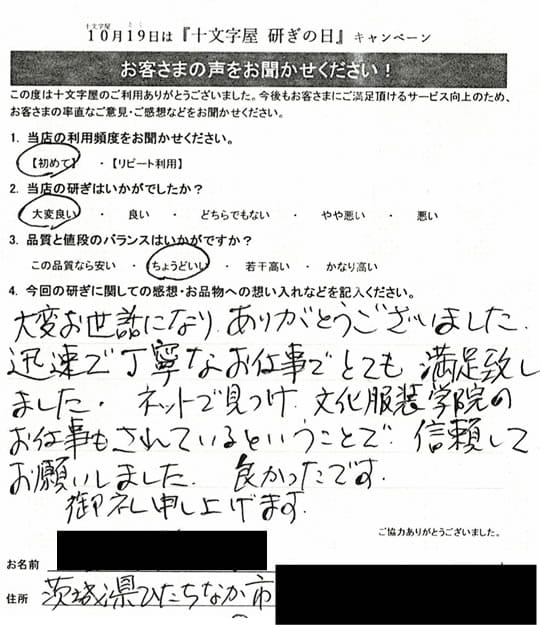 十文字屋 とく
10月19日は『十文字屋 研ぎの日』キャンペーン
お客さまの声をお聞かせください！
この度は十文字屋のご利用ありがとうございました。今後もお客さまにご満足頂けるサービス向上のため、
お客さまの率直なご意見・ご感想などをお聞かせください。
1. 当店の利用頻度をお聞かせください。
【初めて】 ・【リピート利用】
2. 当店の研ぎはいかがでしたか？
大変良い ・ 良い ・ どちらでもない ・ やや悪い ・ 悪い
3. 品質と値段のバランスはいかがですか？
この品質なら安い ・ ちょうどいい ・ 若干高い ・ かなり高い
4. 今回の研ぎに関しての感想・お品物への想い入れなどを記入ください。
大変お世話になり、ありがとうございました。
迅速で丁寧なお仕事でとても満足致し
ました。ネットで見つけ、文化服装学院の
お仕事もされているということで、信頼して
お願いしました。良かったです。
御礼申し上げます。
ご協力ありがとうございました。
お名前
住所 茨城県ひたちなか市